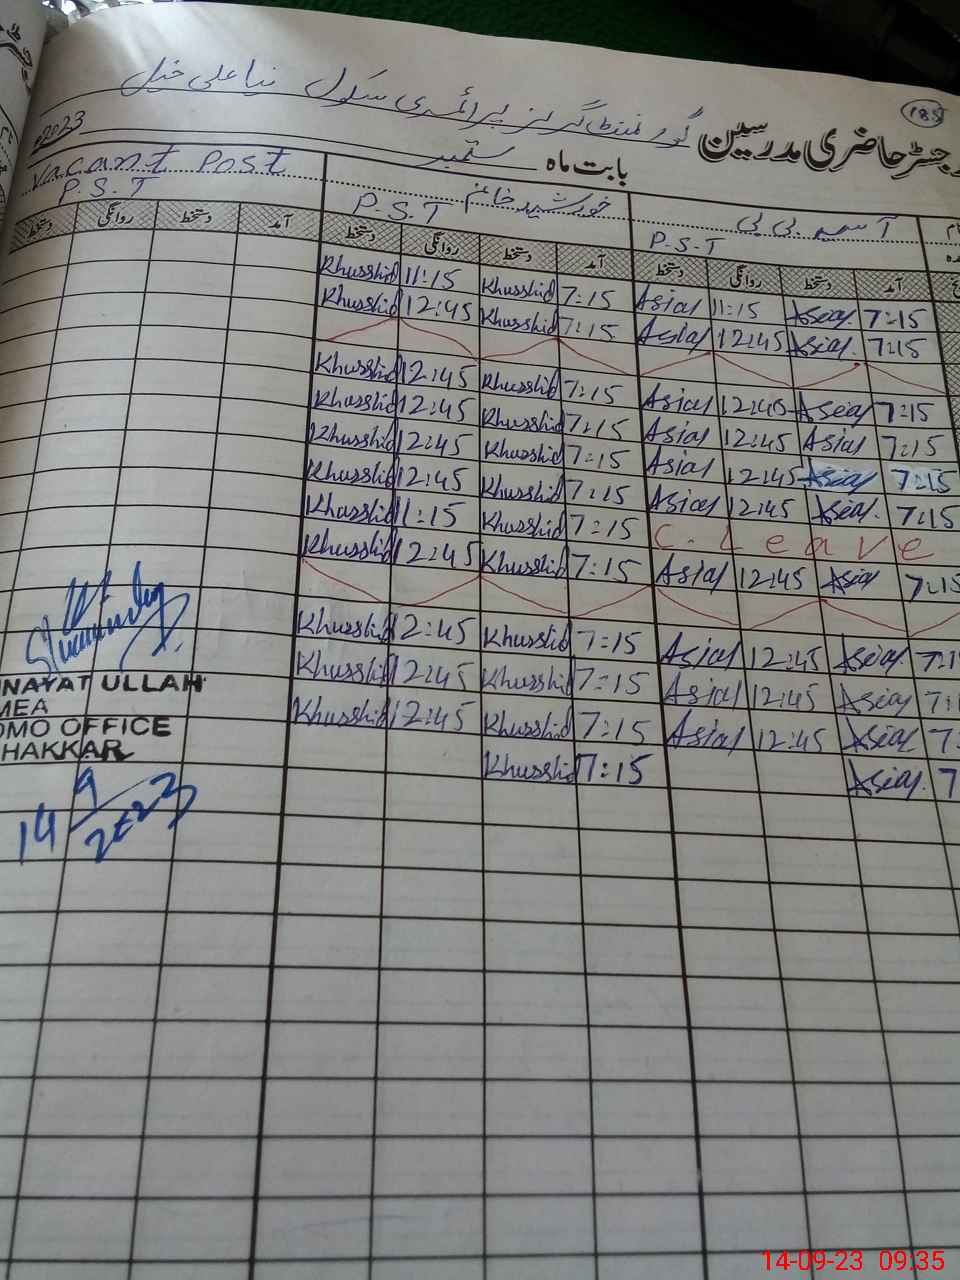 185
رجسٹر حاضری مدرسین گورنمنٹ گرلز پرائمری سکول نیا علی خیل
بابت ماہ ستمبر 2023
آسیہ بی بی خورشید خانم Vacant Post
P.S.T P.S.T P.S.T
آمد دستخط روانگی دستخط آمد دستخط روانگی دستخط آمد دستخط روانگی دستخط
Khusshid 11:15 Khusshid 7:15 Asia 11:15 Asia 7:15
Khusshid 12:45 Khusshid 7:15 Asia 12:45 Asia 7:15
Khusshid 12:45 Khusshid 7:15 Asia 12:45 Asia 7:15
Khusshid 12:45 Khusshid 7:15 Asia 12:45 Asia 7:15
Khusshid 12:45 Khusshid 7:15 Asia 12:45 Asia 7:15
Khusshid 12:45 Khusshid 7:15 Asia 12:45 Asia 7:15
Khusshid 11:15 Khusshid 7:15 C. Leave
Khusshid 12:45 Khusshid 7:15 Asia 12:45 Asia 7:15
Khusshid 12:45 Khusshid 7:15 Asia 12:45 Asia 7:1
Khusshid 12:45 Khusshid 7:15 Asia 12:45 Asia 7:1
Khusshid 12:45 Khusshid 7:15 Asia 12:45 Asia 7:
Khusshid 7:15 Asia 7
NAYAT ULLAH
MEA
OMO OFFICE
HAKKAR
14 9 2023
14-09-23 09:35